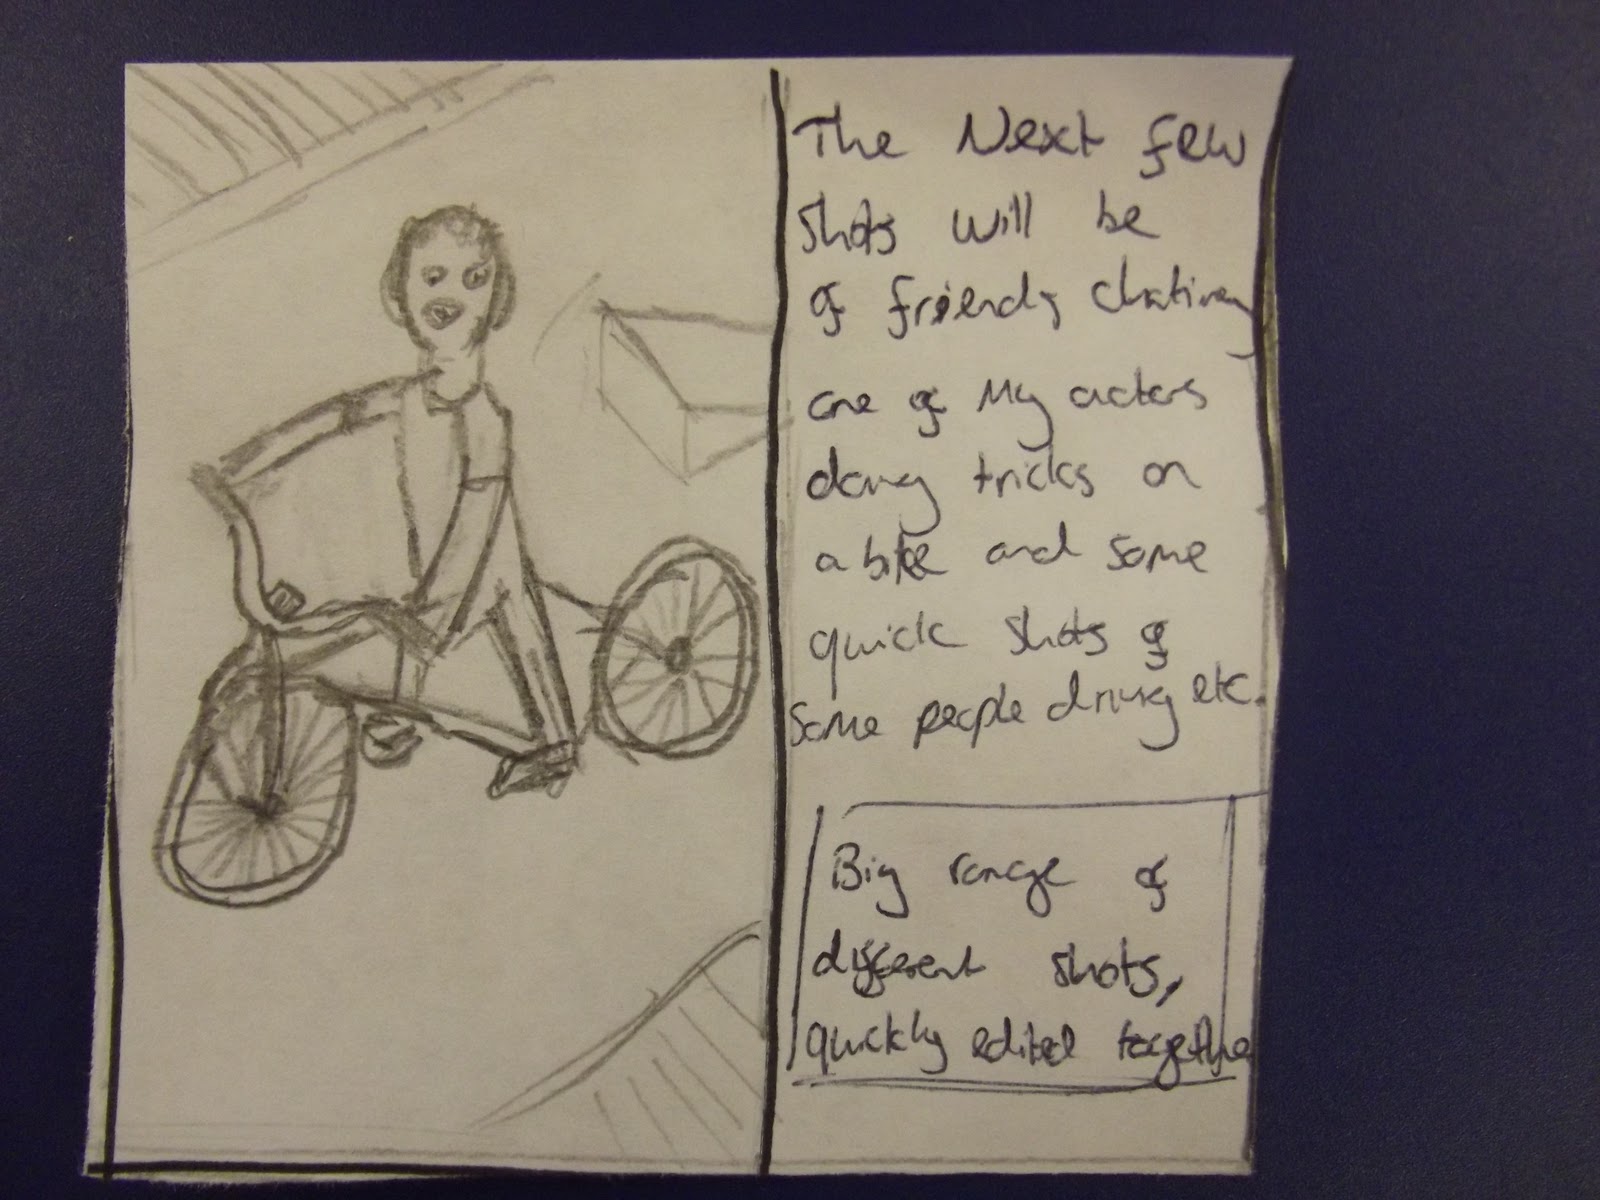 The Next few
shots will be
of friendly chating
one of My actors
doing tricks on
a bike and some
quick shots of
some people driving etc.
Big range of
different shots,
quickly edited together